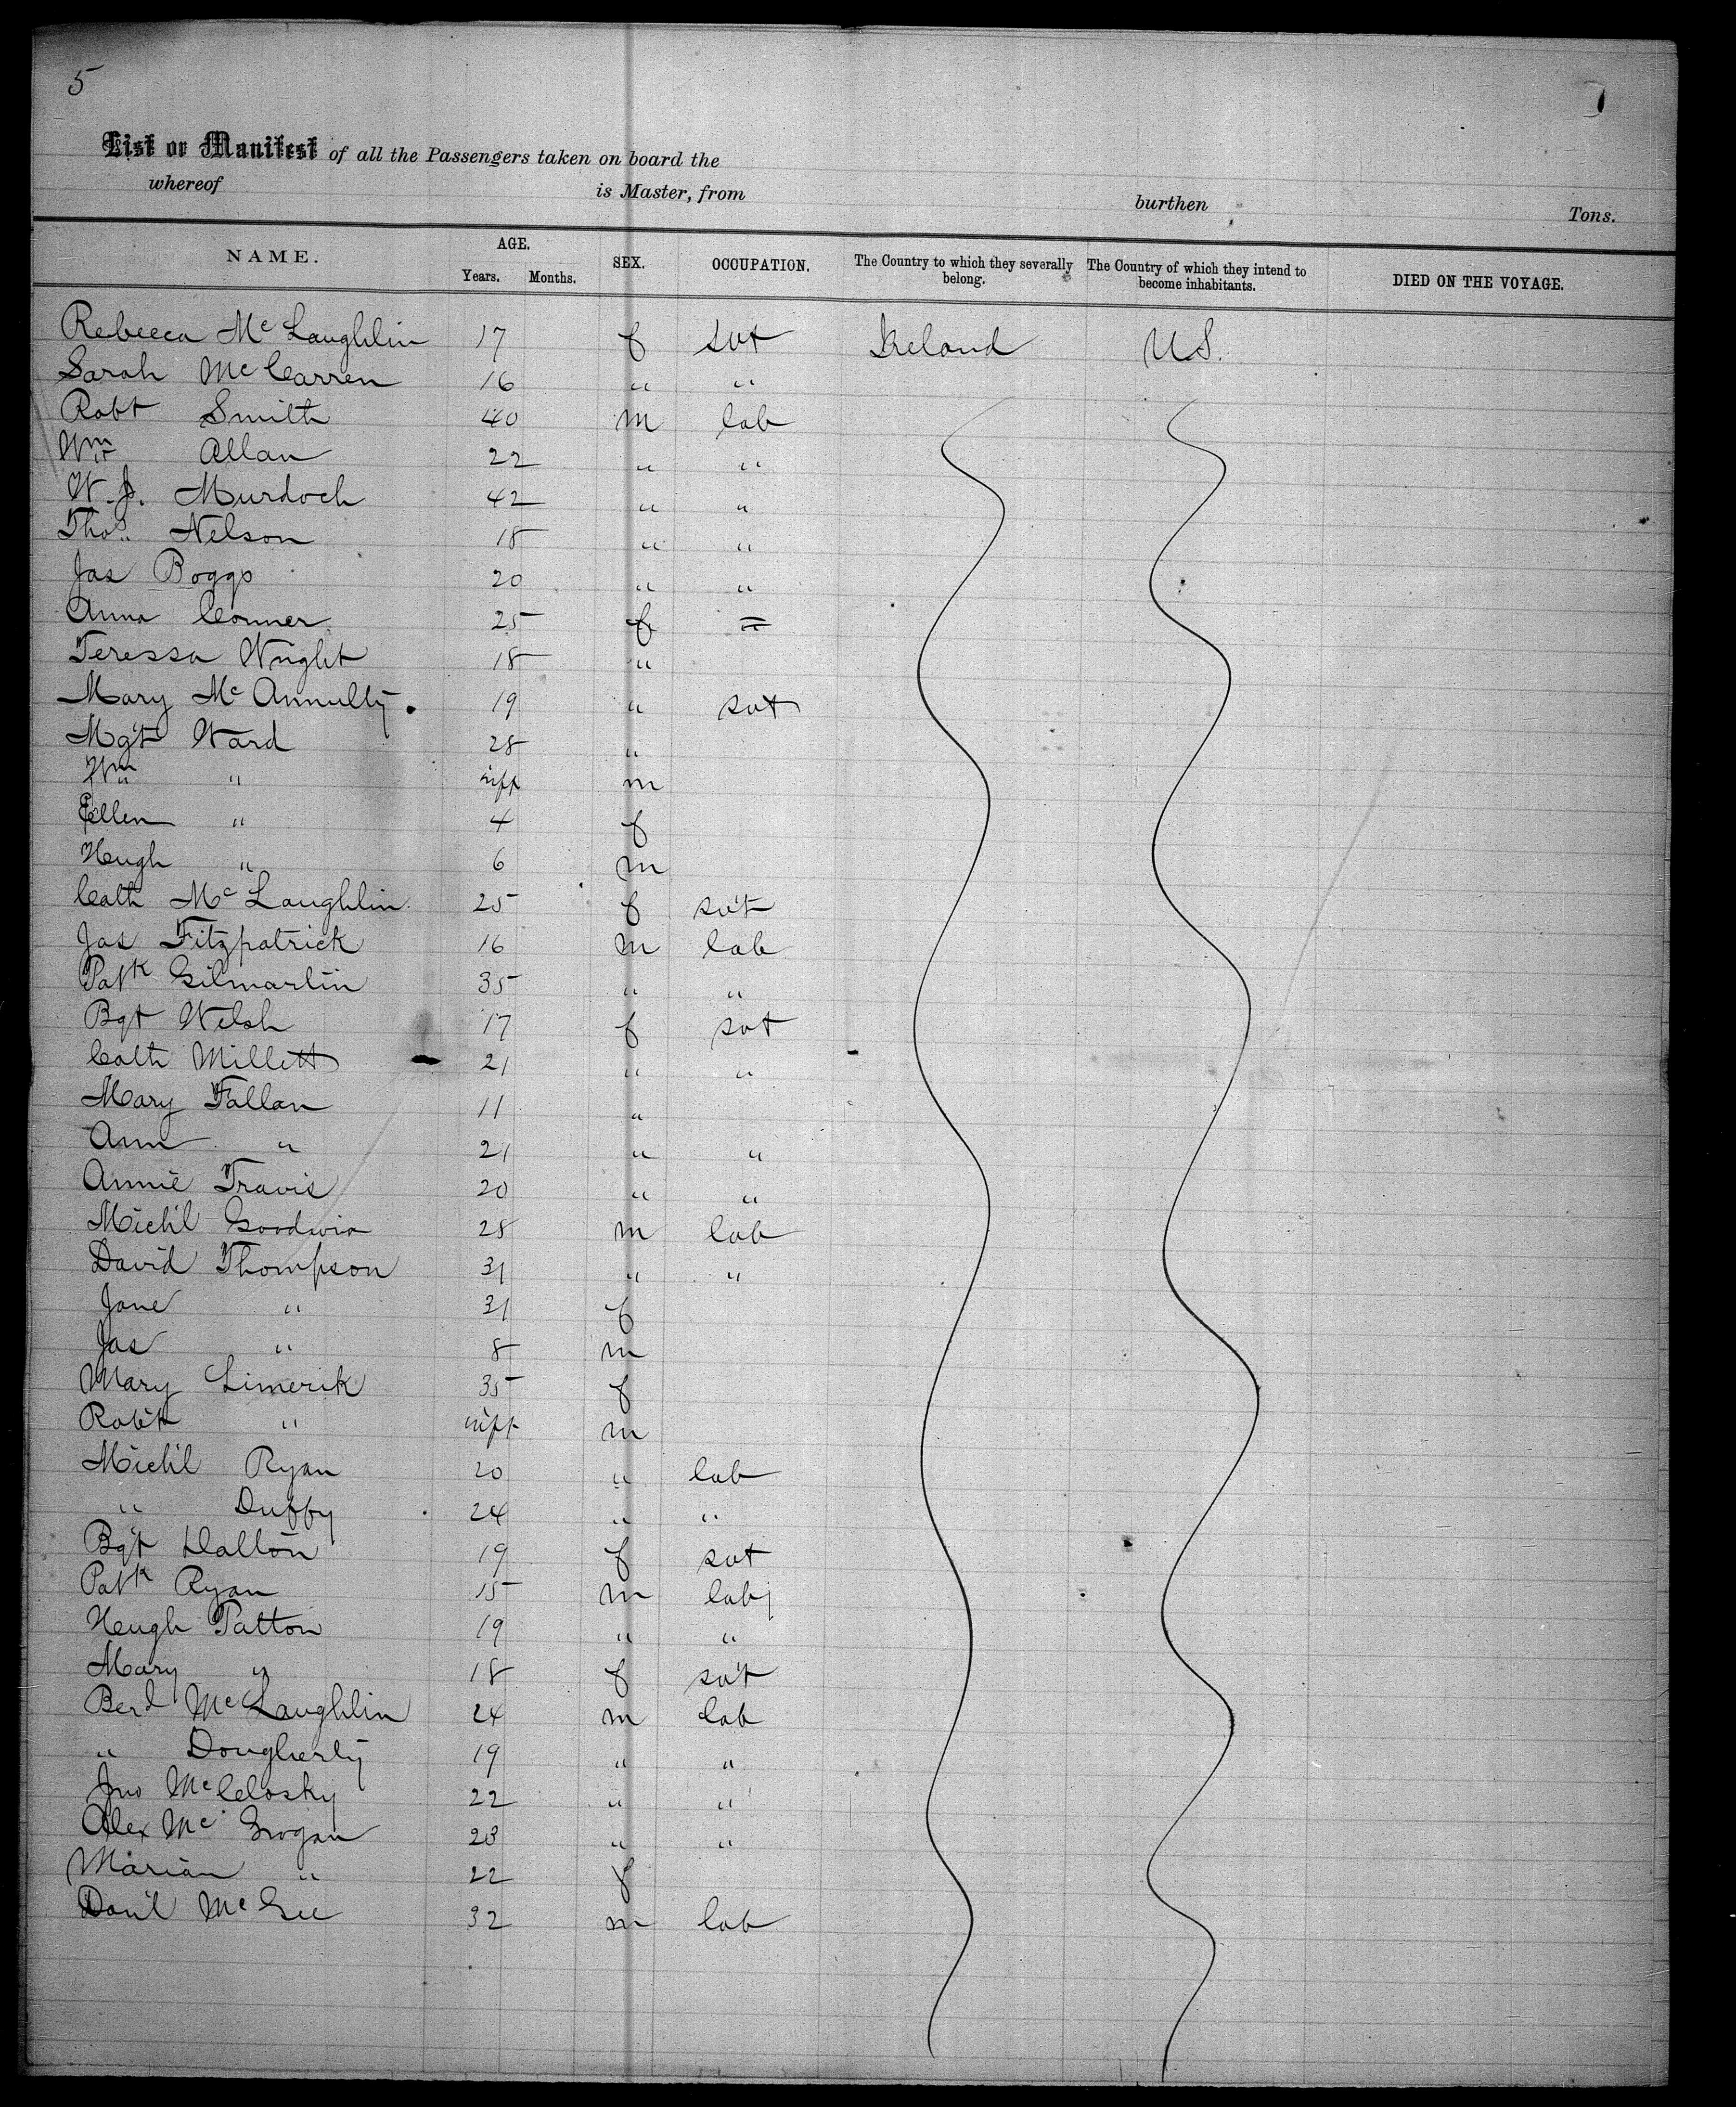 5
List or Manifest of all the Passengers taken on board the
whereof is Master, from burthen Tons.
NAME. AGE. Years. Months. SEX. OCCUPATION. The Country to which they severally belong. The Country of which they intend to become inhabitants. DIED ON THE VOYAGE.
Rebecca McLaughlin 17 f svt Ireland U.S.
Sarah McCarren 16 " "
Robt Smith 40 m lab
Wm Allan 22 " "
W.J. Murdoch 42 " "
Thos. Nelson 18 " "
Jas Boggs 20 " "
Anna Conner 25 f =
Teressa Wright 18 "
Mary McAnnulty. 19 " svt
Mgt Ward 28 "
Wm " inft m
Ellen " 4 f
Hugh " 6 m
Cath McLaughlin 25 f svt
Jas Fitzpatrick 16 m lab
Patk Gilmartin 35 " "
Bgt Welsh 17 f svt
Cath Millett 21 " "
Mary Fallan 11 "
Ann " 21 " "
Annie Travis 20 " "
Michl Goodwin 28 m lab
David Thompson 31 " "
Jane " 31 f
Jas " 8 m
Mary Limerik 35 f
Robt " inft m
Michl Ryan 20 " lab
" Duffy 24 " "
Bgt Dalton 19 f svt
Patk Ryan 15 m lab
Hugh Patton 19 " "
Mary " 18 f svt
Berd McLaughlin 24 m lab
" Dougherty 19 " "
Jno McClosky 22 " "
Alex McGrogan 23 " "
Marian " 22 f
Danl McGee 32 m lab